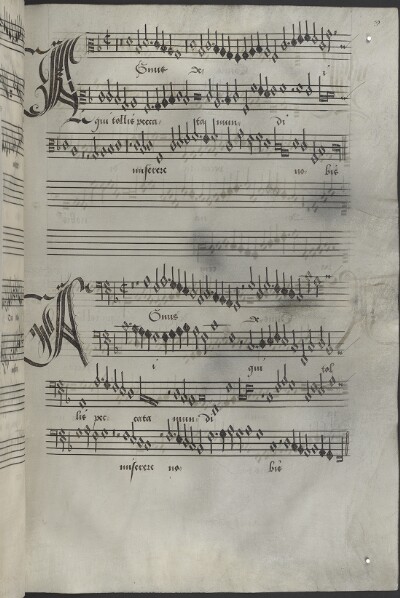 Agnus de i
qui tollis pecca ta mun di
miserere no bis
Agnus de
i qui tol
lis pec cata mun di
miserere no bis